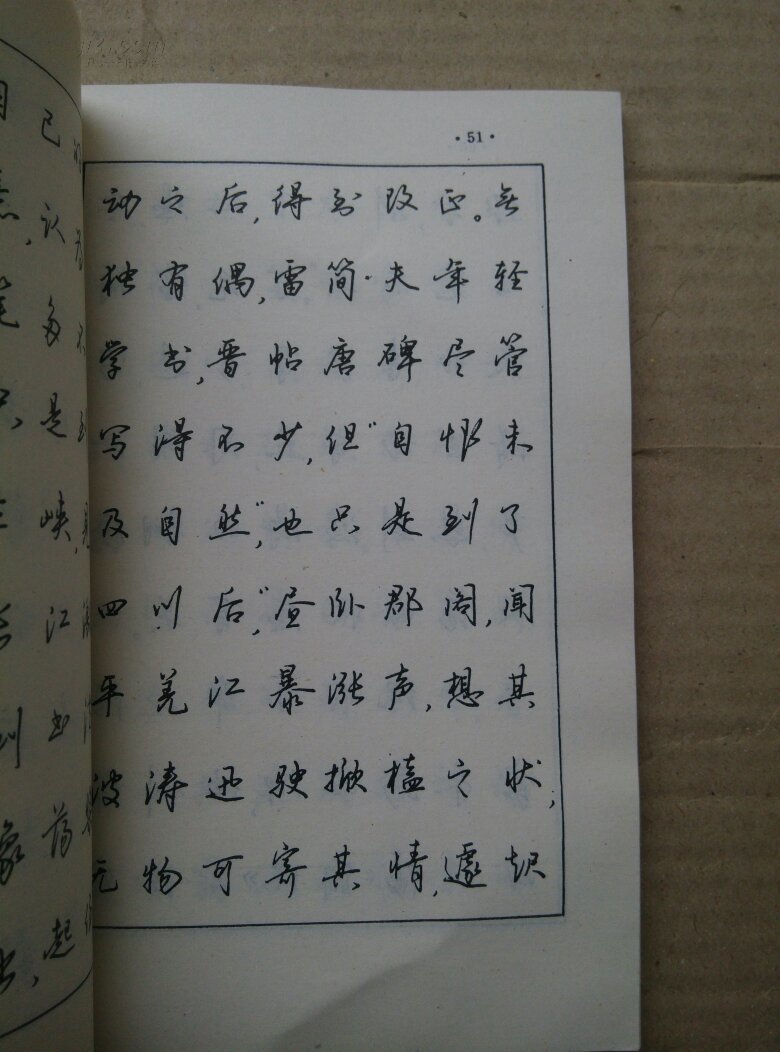 ·51·
动之后，得到改正。无
独有偶，雷简·夫年轻
学书，晋帖唐碑尽管
写得不少，但“自恨未
及自然”，也只是到了
四川后，“昼卧郡阁，闻
平羌江暴涨声，想其
波涛迅驶掀榼之状，
无物可寄其情，遽起
已认多是峡江书荡起